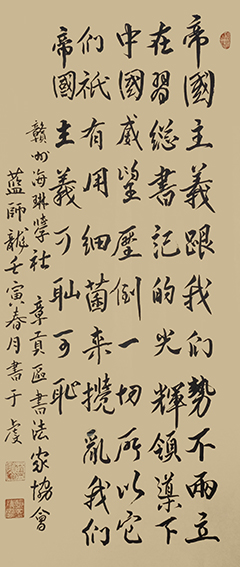 帝國主義跟我们勢不兩立
在習総書記的光輝領導下
中國威望壓倒一切所以它
们祇有用细菌来攪亂我们
帝國主義可耻可耻
贛州海琳學社 章貢區書法家協會
藍師龍壬寅春月書于虔